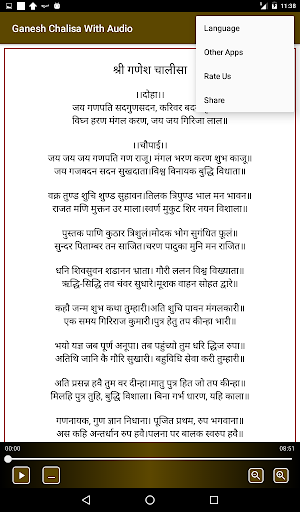 11:38
Ganesh Chalisa With Audio
Language
Other Apps
Rate Us
Share
श्री गणेश चालीसा
।।दोहा।।
जय गणपति सदगुणसदन, करिवर
विघ्न हरण मंगल करण, जय जय गिरिजा लाल॥
।।चौपाई।।
जय जय जय गणपति गण राजू। मंगल भरण करण शुभ काजू॥
जय गजबदन सदन सुखदाता।विश्व विनायक बुद्धि विधाता॥
वक्र तुण्ड शुचि शुण्ड सुहावन।तिलक त्रिपुण्ड भाल मन भावन॥
राजत मणि मुक्तन उर माला।स्वर्ण मुकुट शिर नयन विशाला॥
पुस्तक पाणि कुठार त्रिशूलं।मोदक भोग सुगंधित फूलं॥
सुन्दर पिताम्बर तन साजित।चरण पादुका मुनि मन राजित॥
धनि शिवसुवन षडानन भ्राता। गौरी ललन विश्व विख्याता॥
ऋद्धि-सिद्धि तव चंवर सुधारे।मूशक वाहन सोहत द्वारे॥
कहौं जन्म शुभ कथा तुम्हारी।अति शुचि पावन मंगलकारी॥
एक समय गिरिराज कुमारी।पुत्र हेतु तप कीन्हा भारी॥
भयो यज्ञ जब पूर्ण अनूपा। तब पहुंच्यो तुम धरि द्विज रुपा।
अतिथि जानि कै गौरि सुखारी। बहुविधि सेवा करी तुम्हारी॥
अति प्रसन्न हवै तुम वर दीन्हा।मातु पुत्र हित जो तप कीन्हा॥
मिलहि पुत्र तुहि, बुद्धि विशाला। बिना गर्भ धारण, यहि काला॥
गणनायक, गुण ज्ञान निधाना। पूजित प्रथम, रुप भगवाना॥
अस कहि अन्तर्धान रुप हवै।पलना पर बालक स्वरुप हवै।
00:00
08:51